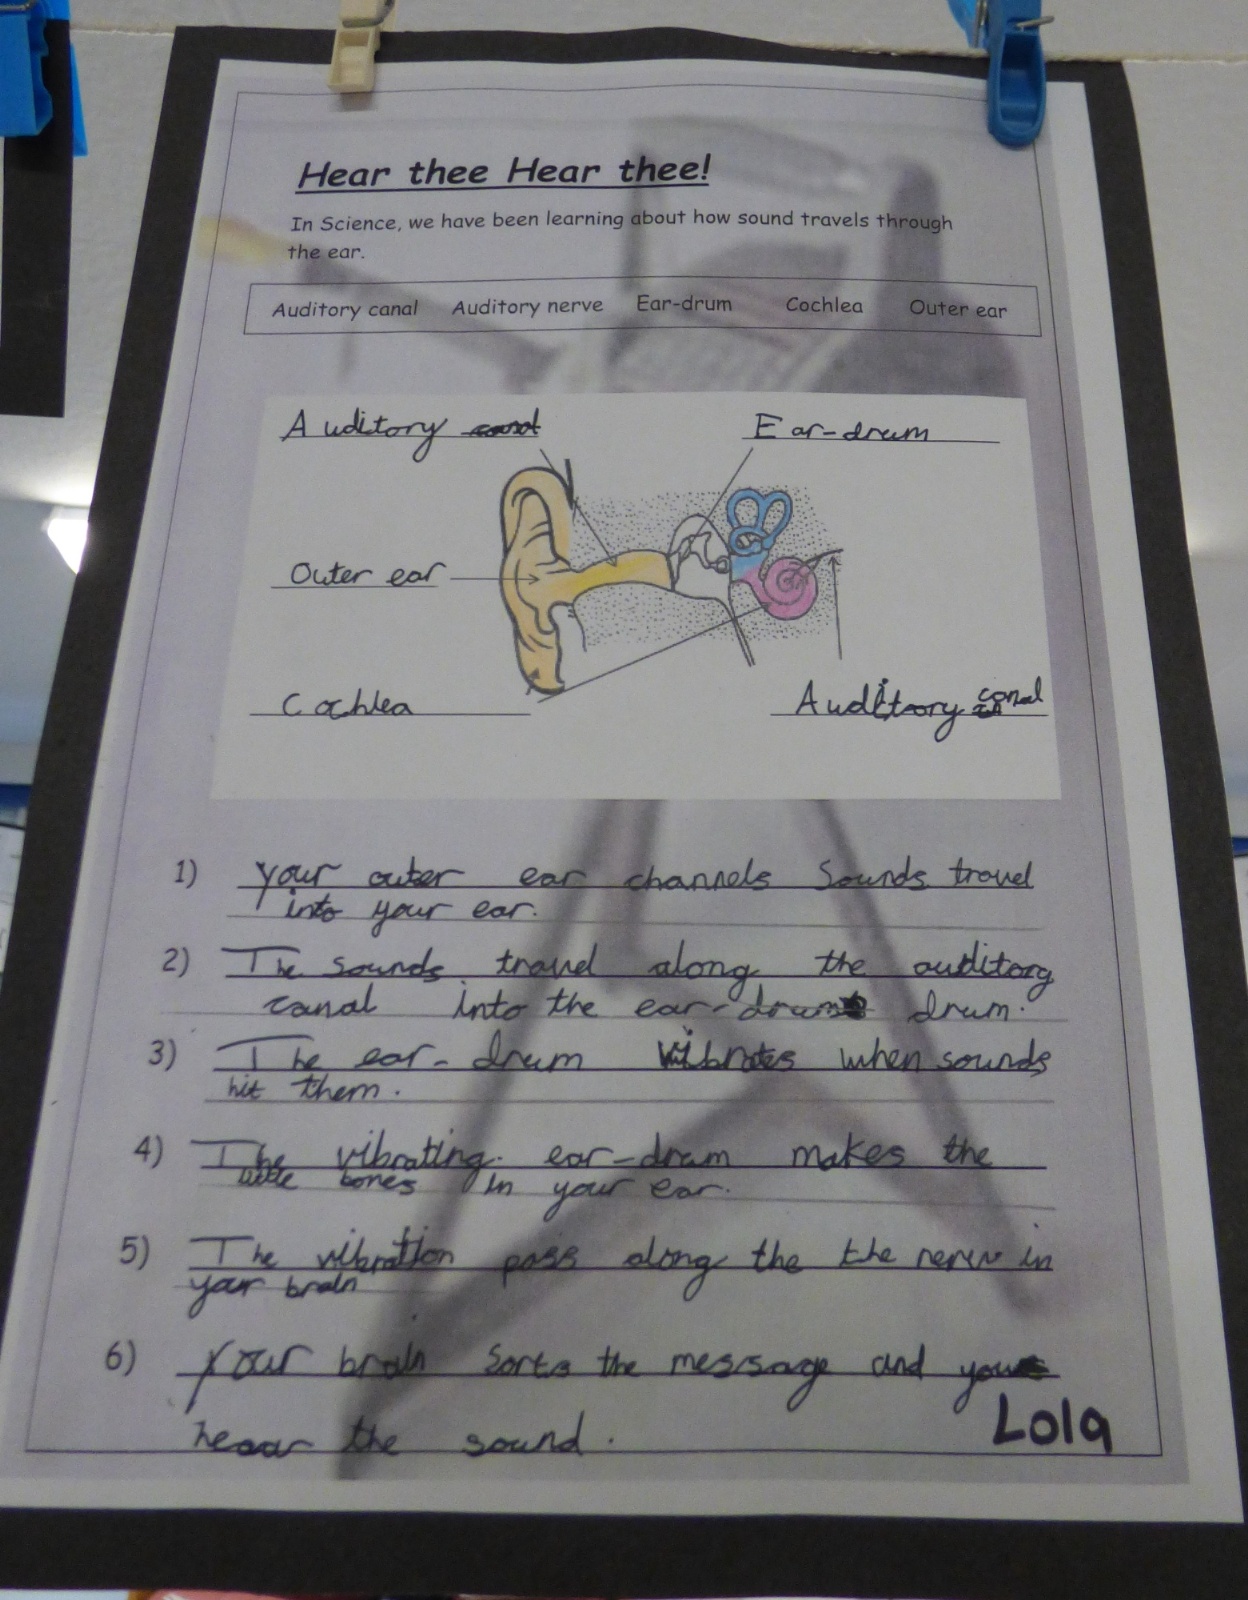 Hear thee Hear thee!
In Science, we have been learning about how sound travels through
the ear.
Auditory canal Auditory nerve Ear-drum Cochlea Outer ear
Auditory Ear-drum
Outer ear
Cochlea Auditory canal
1) Your outer ear channels sounds travel
into your ear.
2) The sounds travel along the auditory
canal into the ear-drum drum.
3) The ear-drum vibrates when sounds
hit them.
4) The vibrating ear-drum makes the
little bones in your ear.
5) The vibration pass along the the nerve in
your brain
6) Your brain sorts the message and you
hear the sound.
Lola